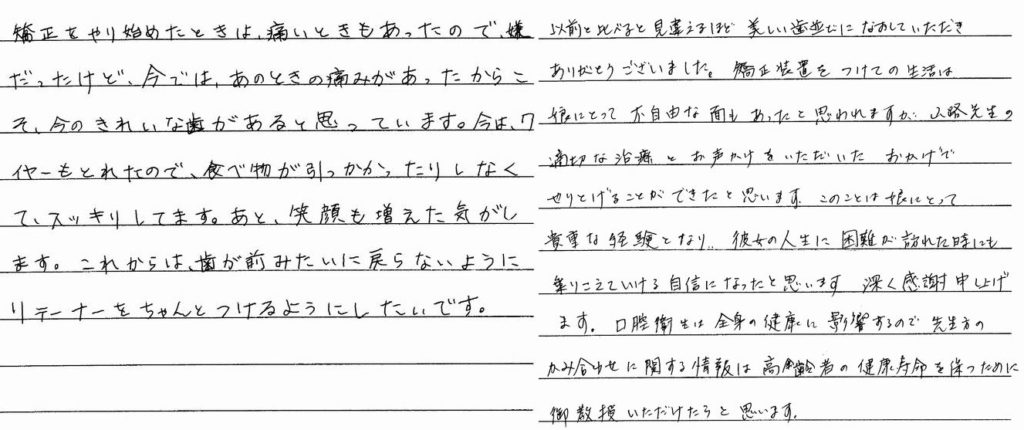 矯正をやり始めたときは、痛いときもあったので、嫌
だったけど、今では、あのときの痛みがあったからこ
そ、今のきれいな歯があると思っています。今は、ワ
イヤーもとれたので、食べ物が引っかかったりしなく
て、スッキリしてます。あと、笑顔も増えた気がし
ます。これからは、歯が前みたいに戻らないように
リテーナーをちゃんとつけるようにしたいです。
以前と比べると見違えるほど 美しい歯並びになおしていただき
ありがとうございました。矯正装置をつけての生活は
娘にとって不自由な面もあったと思われますが、山路先生の
適切な治療とお声かけをいただいた おかげで
やりとげることができたと思います。このことは娘にとって
貴重な経験となり、彼女の人生に困難が訪れた時にも
乗りこえていける自信になったと思います 深く感謝申し上げ
ます。口腔衛生は全身の健康に影響するので先生方の
かみ合わせに関する情報は高齢者の健康寿命を保つために
御教授いただけたらと思います。